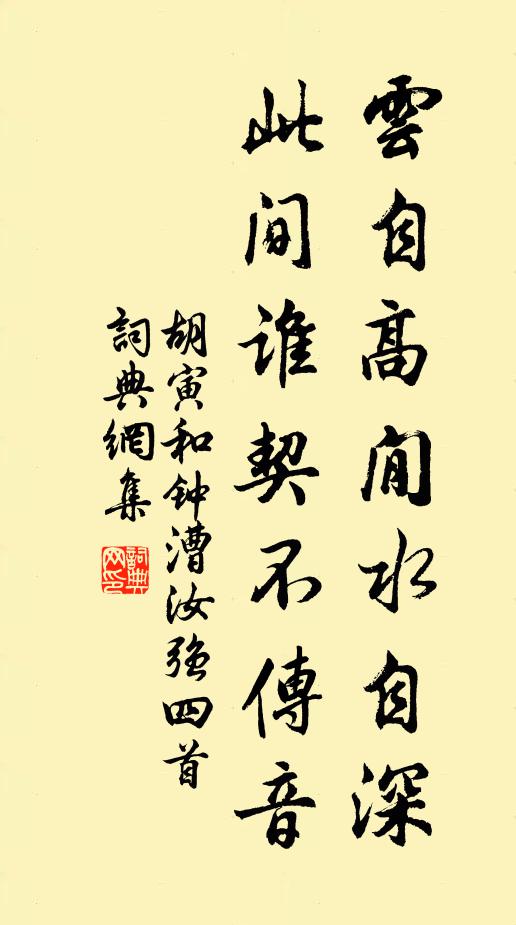 雲自高閒水自深
此间谁契不傳音
胡寅和钟漕汝强四首
詞典網集
詞典
网印